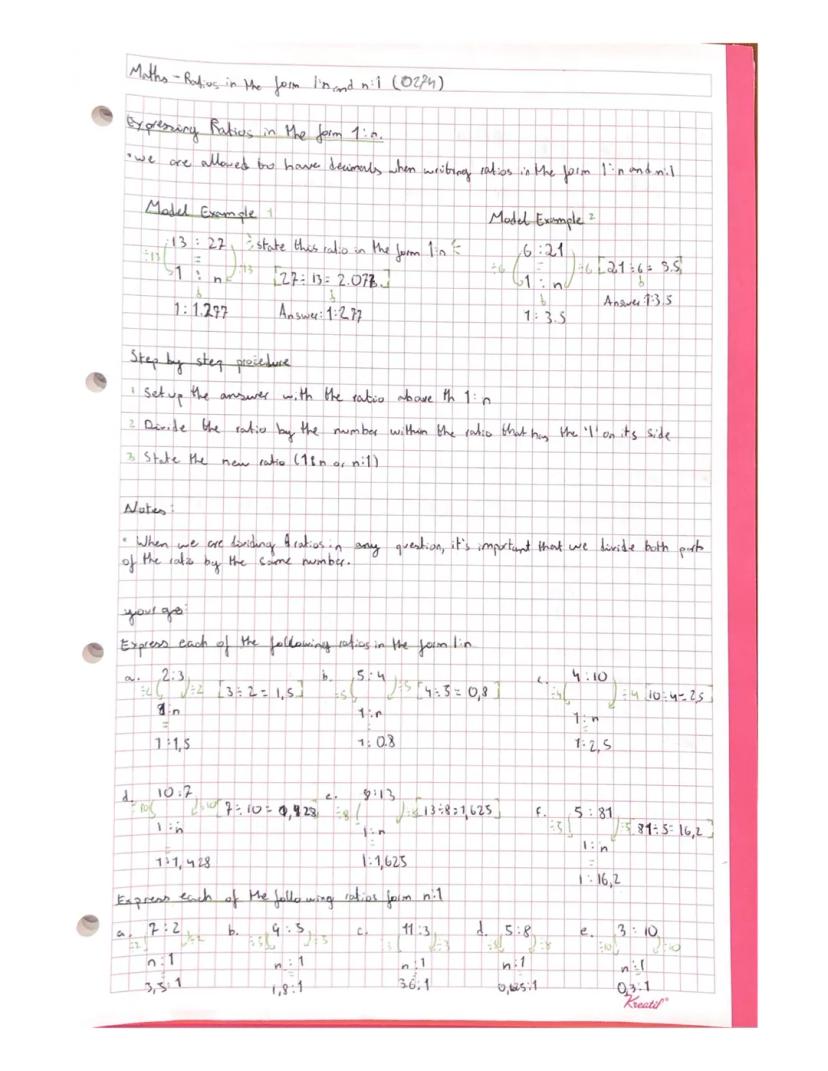 Maths - Ratios in the form 1:n and n:1 (0274)
Expressing Ratios in the form 1:n.
• we are allowed to have decimals when writing ratios in the form 1:n and n:1
Model Example 1 Model Example 2
13 : 27 state this ratio in the form 1:n 6 : 21
÷13 = ÷13 ÷6 = ÷6 [21÷6= 3.5]
1 : n [27÷13= 2.077.] 1 : n
1:1.277 Answer: 1:2.77 1:3.5 Answer 1:3.5
Step by step procedure
1 Set up the answer with the ratio above th 1:n
2 Divide the ratio by the number within the ratio that has the '1' on its side
3 State the new ratio (1:n or n:1)
Notes:
• When we are dividing ratios in any question, it's important that we divide both parts
of the ratio by the same number.
your go:
Express each of the following ratios in the form 1:n
a. 2:3 b. 5:4 c. 4:10
÷2 ÷2 [3÷2=1,5] ÷5 ÷5 [4÷5=0,8] ÷4 ÷4 [10÷4=2,5]
1:n 1:n 1:n
1:1,5 1:0.8 1:2,5
d. 10:7 e. 8:13 f. 5:81
÷10 ÷10 [7÷10= ,428] ÷8 ÷8 [13÷8=1,625] ÷5 ÷5 [81÷5=16,2]
1:n 1:n 1:n
1:1,428 1:1,625 1:16,2
Express each of the following ratios form n:1
a. 7:2 b. 9:5 c. 11:3 d. 5:8 e. 3:10
÷2 ÷2 ÷5 ÷5 ÷3 ÷3 ÷8 ÷8 ÷10 ÷10
n:1 n:1 n:1 n:1 n:1
3,5:1 1,8:1 3.6:1 0,625:1 0,3:1
Kreatif